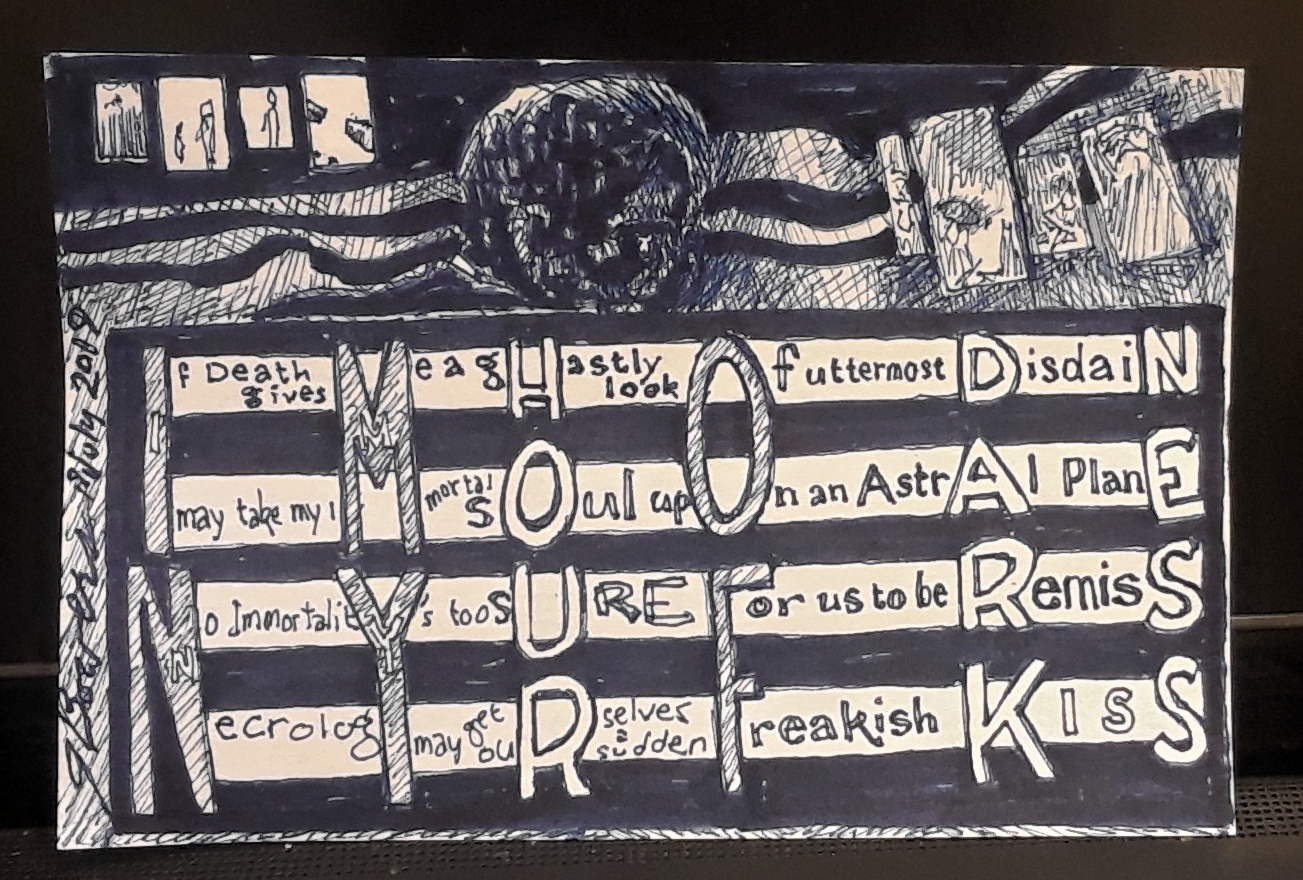 If Death gives Me a gHastly look Of uttermost DisdaiN
I may take my IMmortal SOul upOn an AstrAl PlanE
No ImmortalitY's too SURE For us to be RemisS
NecrologY may get ouRselves a sudden Freakish KisS
July 2019